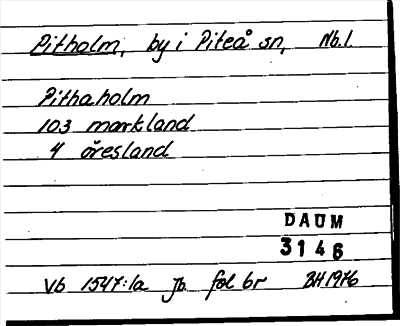 Pitholm, by i Piteå sn, Nb.l.
Pithaholm
103 markland
4 öresland
DAUM
3146
Vb 1547:1a Jb fol 6r BH 1976